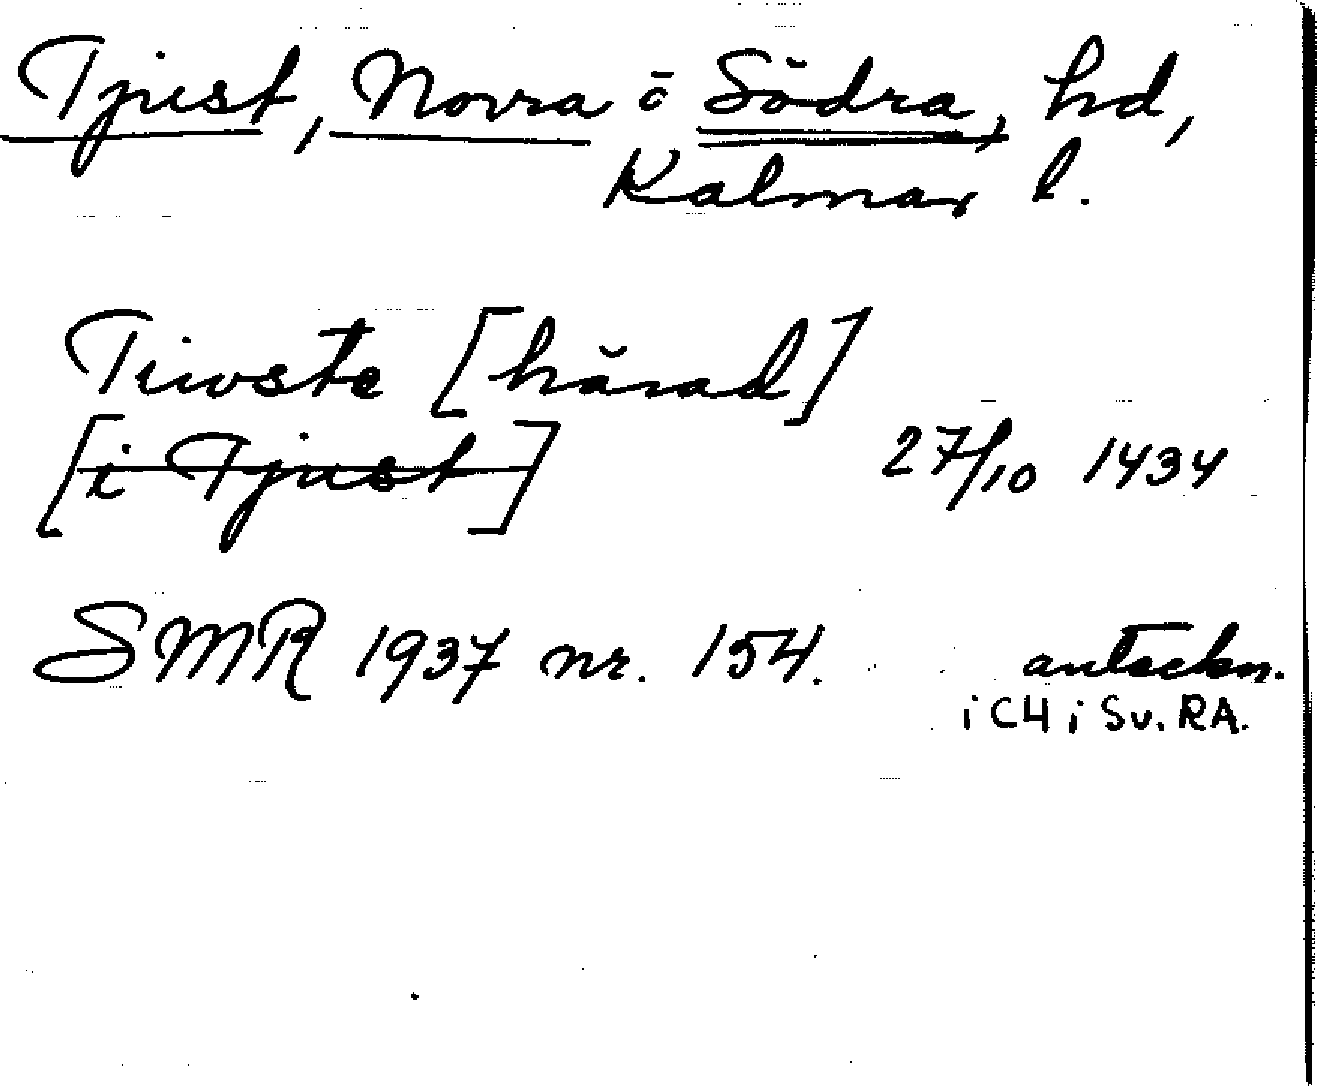 Tjust, Norra ö Södra, hd,
Kalmar l.
Tiwste [härad]
[i Tjust] 27/10 1434
SMR 1937 nr. 154. anteckn.
i CH i Sv. RA.